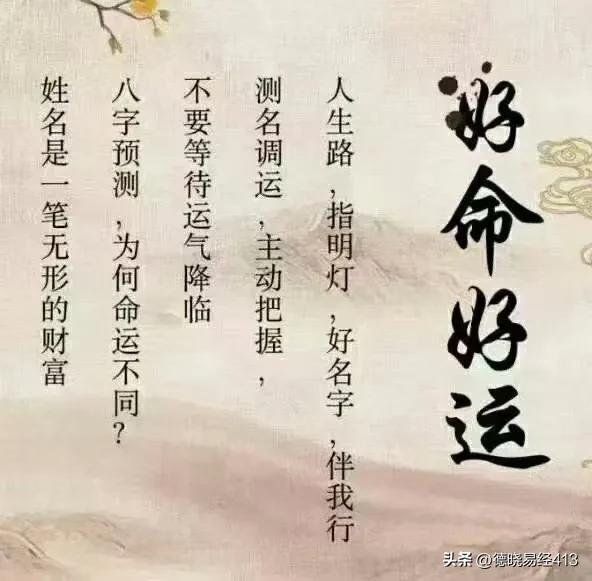 好命好运
人生路，指明灯，好名字，伴我行
测名调运，主动把握，
不要等待运气降临
八字预测，为何命运不同？
姓名是一笔无形的财富
头条 @德晓易经413